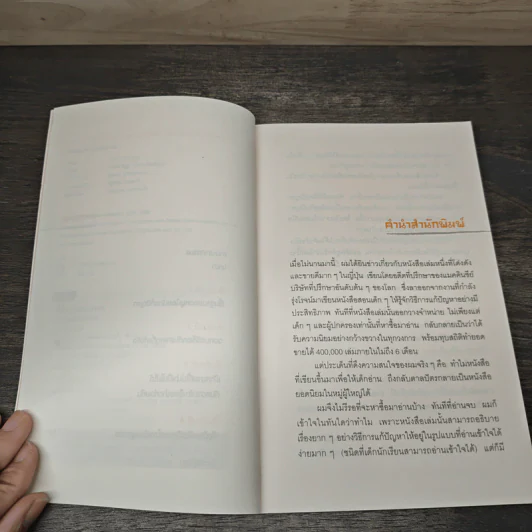 คำนำสำนักพิมพ์
เมื่อไม่นานมานี้ ผมได้ยินข่าวเกี่ยวกับหนังสือเล่มหนึ่งที่โด่งดัง
และขายดีมาก ๆ ในญี่ปุ่น เขียนโดยอดีตที่ปรึกษาของแมคคินซีย์
บริษัทที่ปรึกษาอันดับต้น ๆ ของโลก ซึ่งลาออกจากงานที่กำลัง
รุ่งโรจน์มาเขียนหนังสือสอนเด็ก ๆ ให้รู้จักวิธีการแก้ปัญหาอย่างมี
ประสิทธิภาพ ทันทีที่หนังสือเล่มนั้นออกวางจำหน่าย ไม่เพียงแต่
เด็ก ๆ และผู้ปกครองเท่านั้นที่หาซื้อมาอ่าน กลับกลายเป็นว่าได้
รับความนิยมอย่างกว้างขวางในทุกวงการ พร้อมทุบสถิติทำยอด
ขายได้ 400,000 เล่มภายในไม่ถึง 6 เดือน
แต่ประเด็นที่ดึงความสนใจของผมจริง ๆ คือ ทำไมหนังสือ
ที่เขียนขึ้นมาเพื่อให้เด็กอ่าน ถึงกลับตาลปัตรกลายเป็นหนังสือ
ยอดนิยมในหมู่ผู้ใหญ่ได้
ผมจึงไม่รีรอที่จะหาซื้อมาอ่านบ้าง ทันทีที่อ่านจบ ผมก็
เข้าใจในทันใดว่าทำไม เพราะหนังสือเล่มนั้นสามารถอธิบาย
เรื่องยาก ๆ อย่างวิธีการแก้ปัญหาให้อยู่ในรูปแบบที่อ่านเข้าใจได้
ง่ายมาก ๆ (ชนิดที่เด็กนักเรียนสามารถอ่านเข้าใจได้) แต่ก็มี